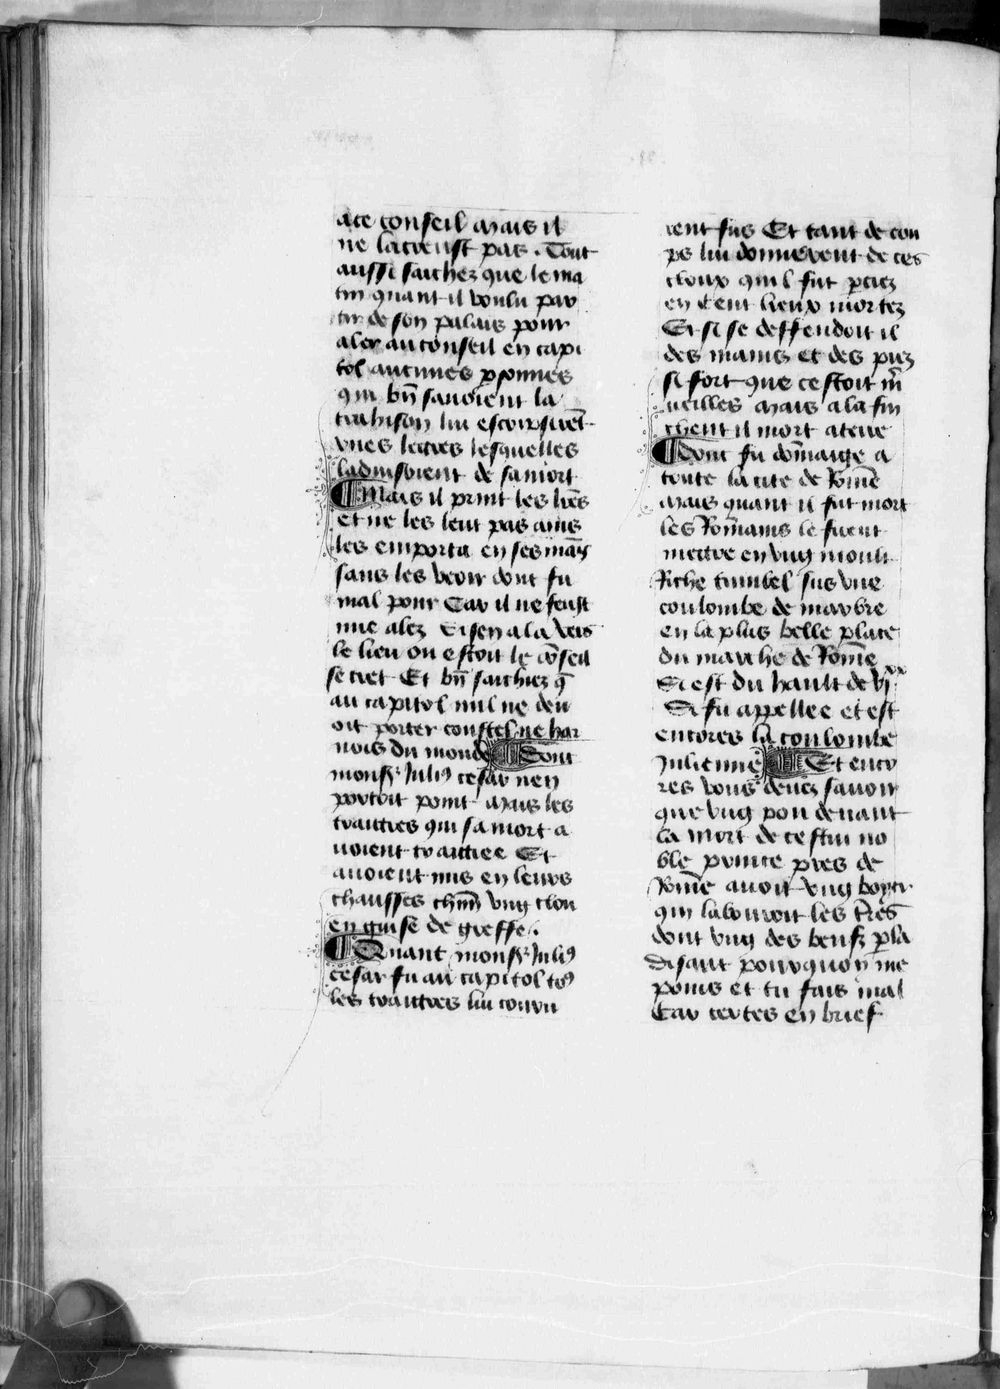 ace conseil mais il
ne lacreust pas . Tout
aussi saichez que le ma
tin quant il voulu par
tir de son palais pour
aler au conseil en capi
tol aucunes pponnes
qui bñ savoient la
trahison lui escripsirēt
unes lectres lesquelles
ladvisoient de sa mort
¶ Mais il print les lr̄es
et ne les leut pas ains
les emporta en ses mais
sans les veoir dont fu
mal pour Car il ne feust
mie alez Et sen ala vers
le lieu ou estoit le cōseil
secret Et bñ saichiez q̄
au capitol nul ne dev
oit porter coustel ne har
nois du monde ¶ Dont
mons̄r Julius cesar nen
portoit point mais les
traittres qui sa mort a
voient traictiee Et
avoient mis en leurs
chausses chm̄ ung clou
en guise de greffe .
¶ Quant mons̄r Julius
cesar fu au capitol tous
les traittres lui couru
rent sus Et tant de cou
ps lui donnerent de ces
cloux quil fut perciez
en cent lieux mortez
Et si se deffendoit il
des mains et des piez
si fort que cestoit m̄
veilles mais a la fin
cheut il mort a terre
¶ Dont fu dōmaige a
toute la cite de Romē
mais quant il fut mort
les Rommains le firent
mectre en ung moult
Riche tumbel sus une
coulombe de marbre
en la plus belle place
du marche de Romē
Si est du hault de vjˣˣ
Si fu appellee et est
encores la coulombe
Julienne ¶ Et enco
res vous devez savoir
que ung pou devant
la mort de cestui no
ble prince pres de
Romē avoit ung boyer
qui labouroit les tr̄es
dont ung des beufz pla
disant pourquoy me
poins et tu fais mal
Car certes en brief